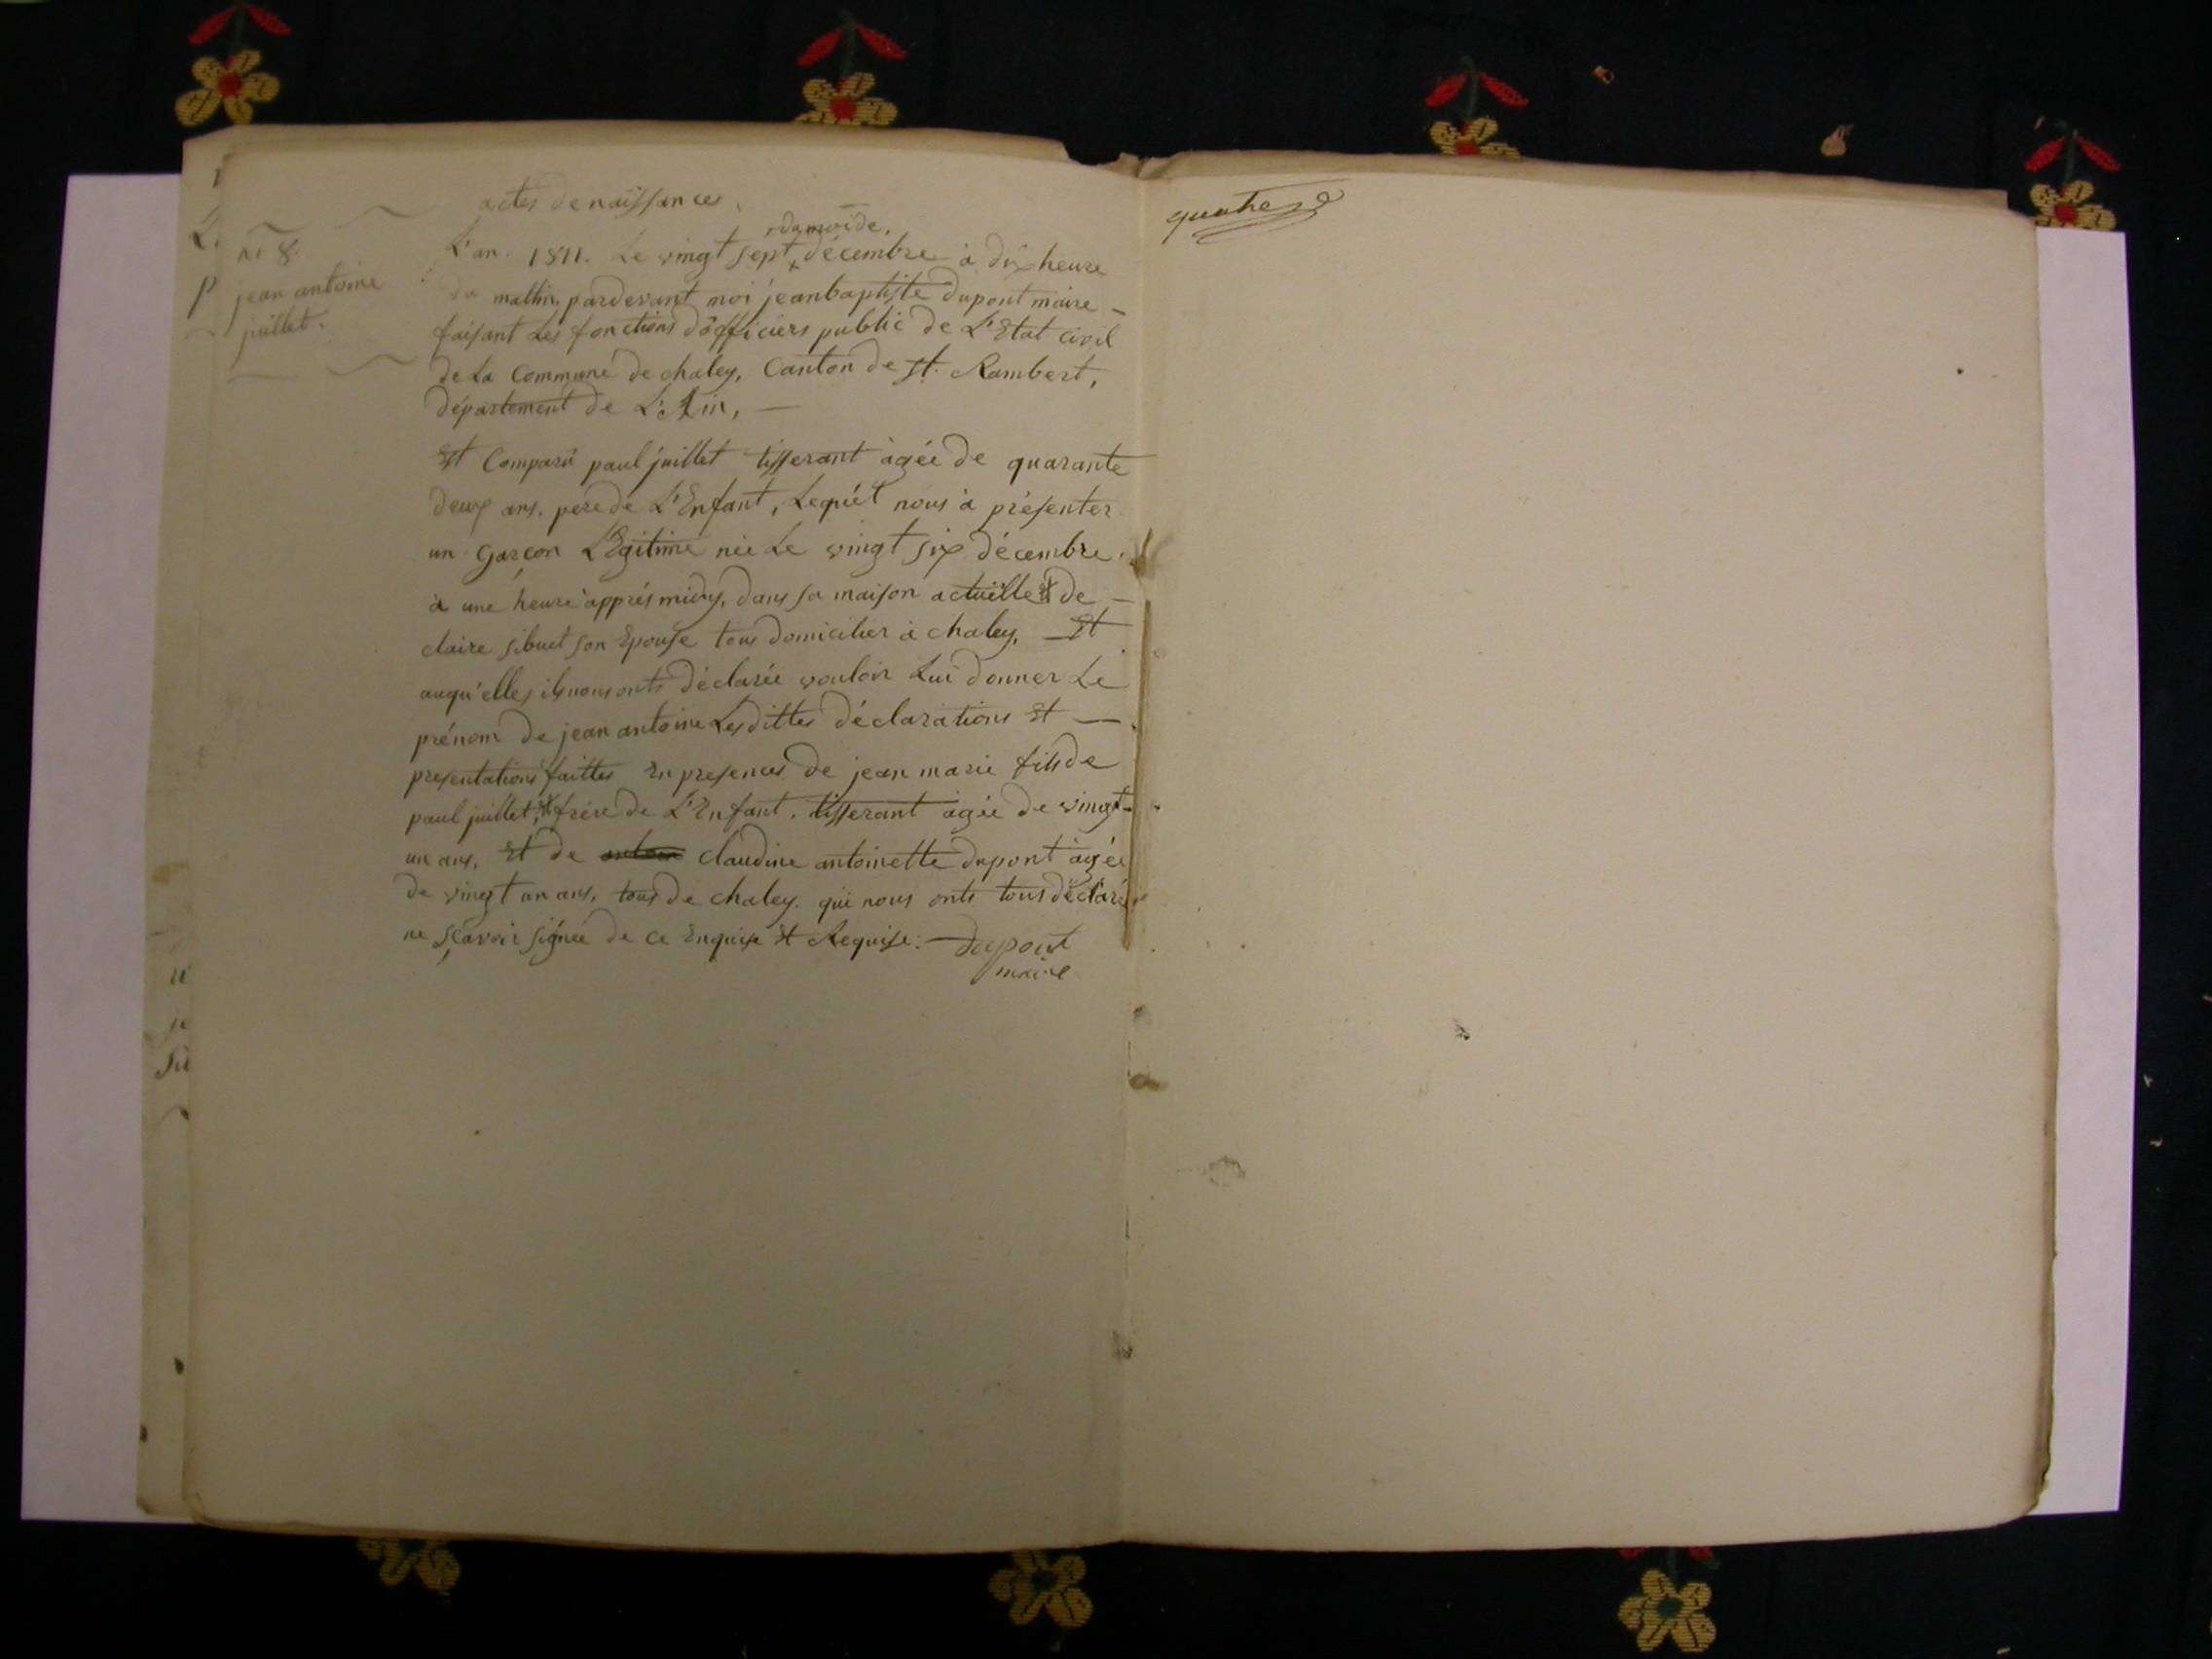 actes de naissances.
n.º 8.
jean antoine
juillet.
du moi de,
L'an. 1811. Le vingt sept décembre à dix heure
du mattin. pardevant moi jeanbaptiste dupont maire
faisant Les fonctions d'officiers public de L'Etat civil
de La Commune de chaley, Canton de St. Rambert,
département de L'Ain,
Est Comparu paul juillet tisserant agée de quarante
deux ans. pere de L'Enfant, Lequél nous à présenter
un Garçon Légitime née Le vingt six décembre.
à une heure apprés midy, dans sa maison actuelle et de
claire sibuet son Epouse tous domicilier à chaley, Et
auqu'elles ils nous onts déclarée vouloir Lui donner Le
prénom de jean antoine Les dittes déclarations Et
presentations faittes En presences de jean marie fils de
paul juillet, et frére de L'Enfant. tisserant agée de vingt
un ans, Et de claudine antoinette dupont agée
de vingt un ans, tous de chaley. qui nous onts tous déclaré
ne sçavoir signée de ce Enquise Et Requise. dupont
maire
quatre